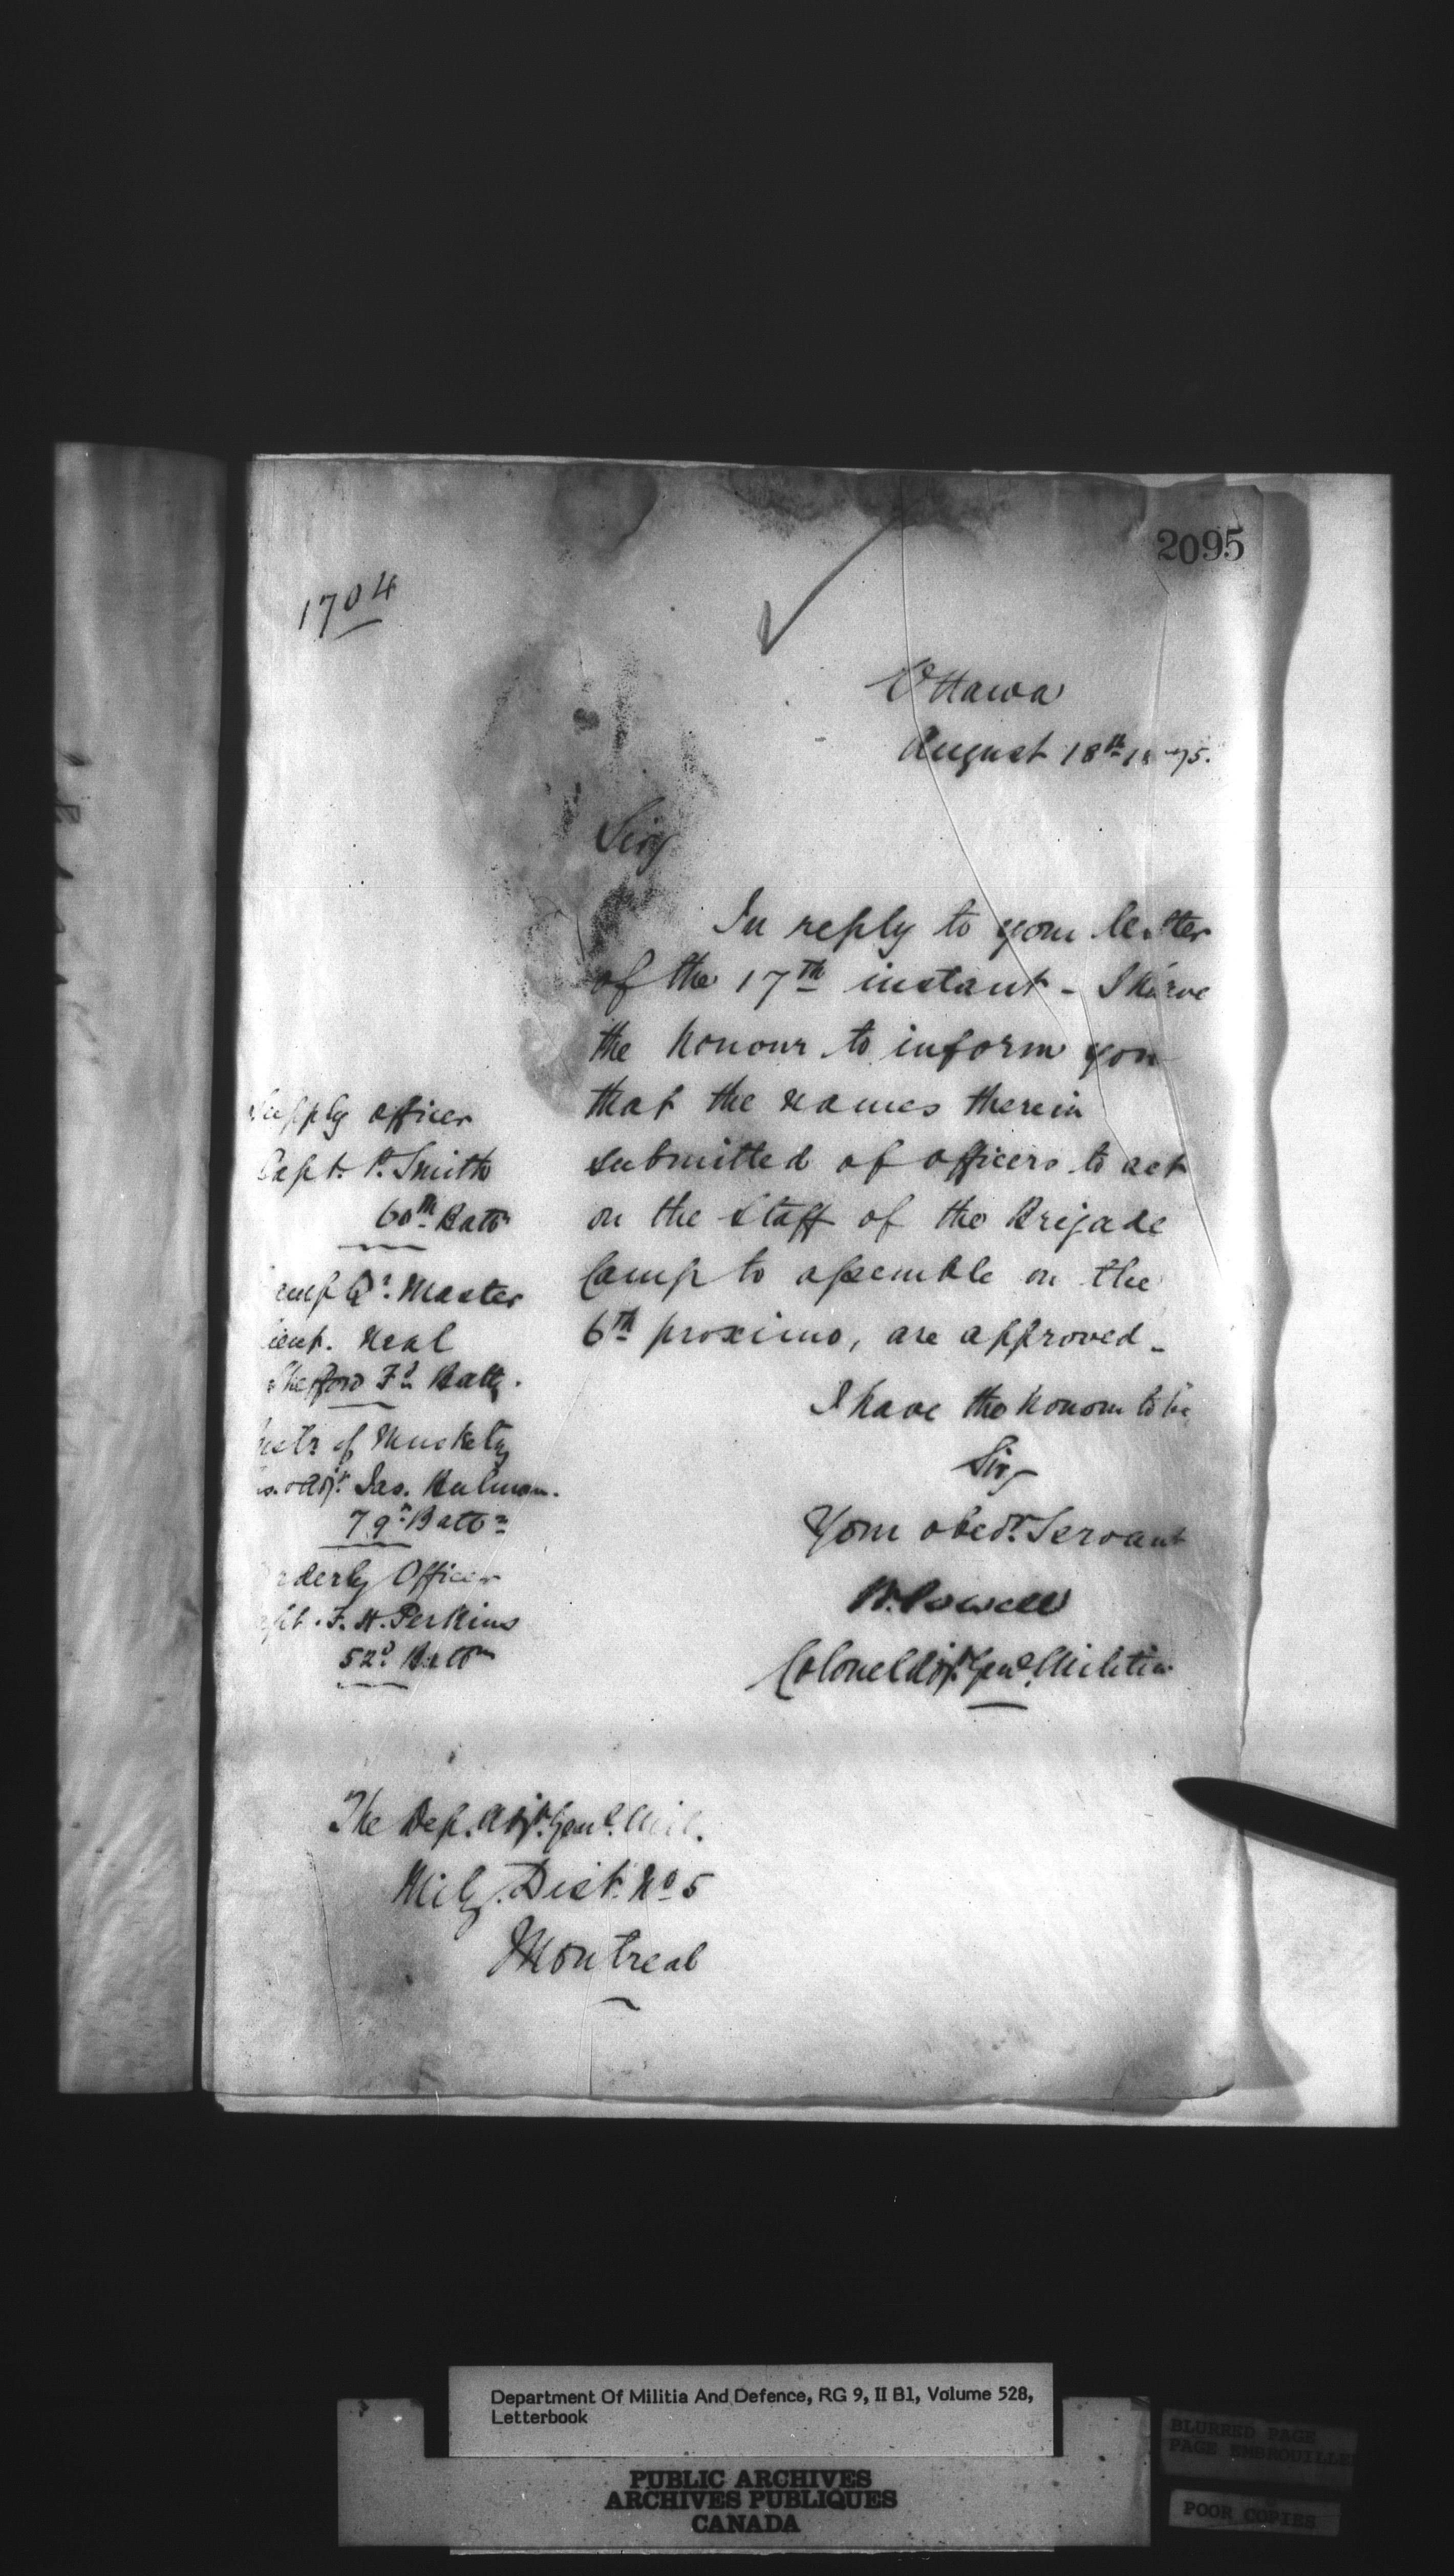 2095
1704
Ottawa
August 18th 1875.
Sir,
In reply to your letter
of the 17th instant - I have
the honour to inform you
that the names therein
submitted of officers to act
on the Staff of the Brigade
Camp to assemble on the
6th proximo, are approved -
I have the honour to be
Sir,
Your obedt. Servant
W. Powell
Colonel Adjt. Genl. Militia
Supply officer
Capt. P. Smith
60th Battn
Camp Qr. Master
Lieut. Neal
Shefford Fd. Batty.
Instr of Musketry
Adjt. Jas. Hulman.
79th Battn
Orderly Officer
Capt. F. H. Perkins
52d Battn
The Dep. Adjt. Genl. Mil.
Mily. Dist. No 5
Montreal
Department Of Militia And Defence, RG 9, II B1, Volume 528,
Letterbook
PUBLIC ARCHIVES
ARCHIVES PUBLIQUES
CANADA
BLURRED PAGE
PAGE EMBROUILLEE
POOR COPIES